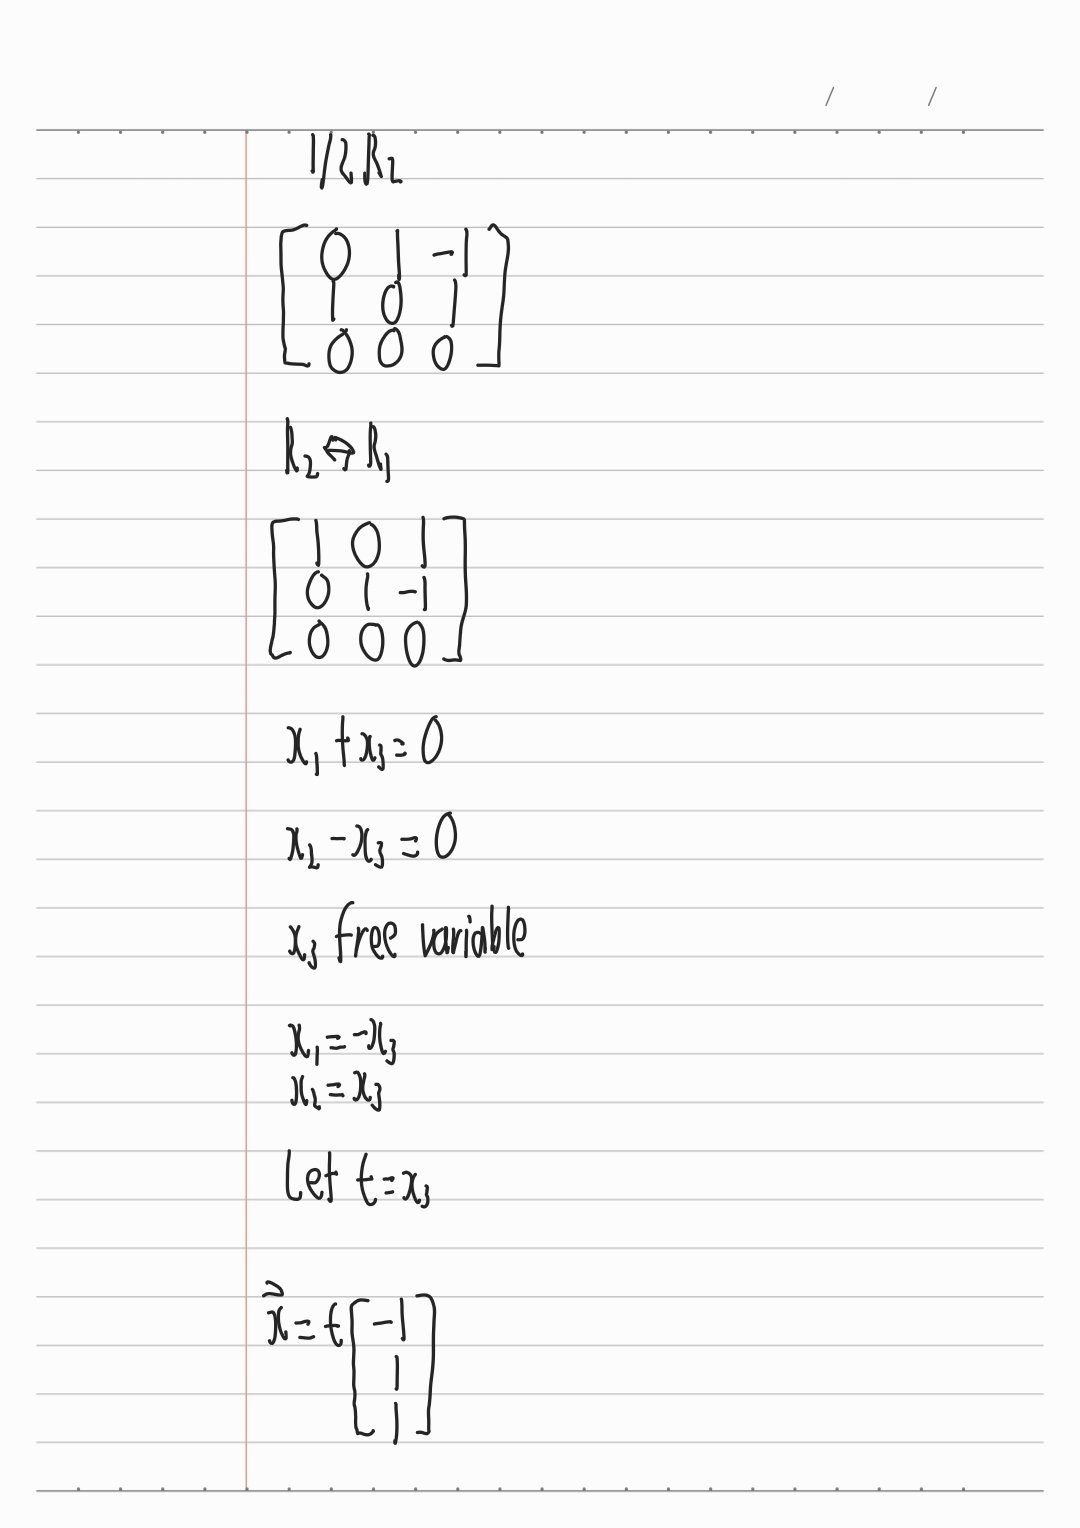 1/2 R₂
[ 0 1 -1
1 0 1
0 0 0 ]
R₂ ↔ R₁
[ 1 0 1
0 1 -1
0 0 0 ]
x₁ + x₃ = 0
x₂ - x₃ = 0
x₃ free variable
x₁ = -x₃
x₂ = x₃
Let t = x₃
x⃗ = t [ -1
1
1 ]